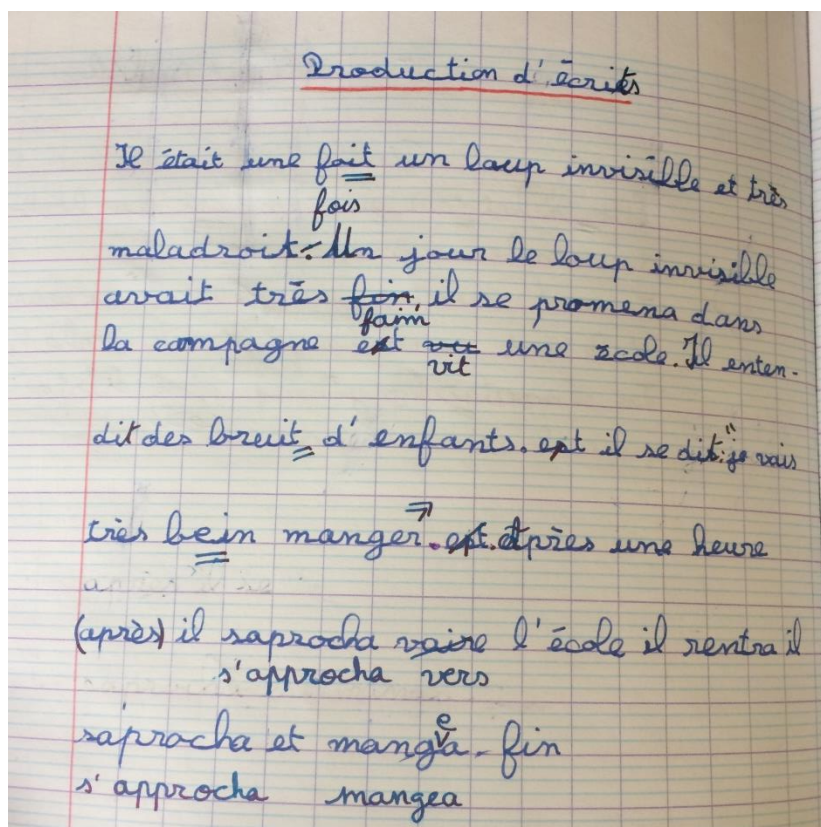 Production d'écrits
Il était une fait un loup invisible et très
fois
maladroit. Un jour le loup invisible
avait très fin, il se promena dans
faim
la campagne et vit une école. Il enten-
vit
dit des breuit d'enfants. et il se dit: "je vais
très bein manger". et. Après une heure
(après) il saprocha vaire l'école il rentra il
s'approcha vers
saprocha et manga. fin
e
s'approcha mangea